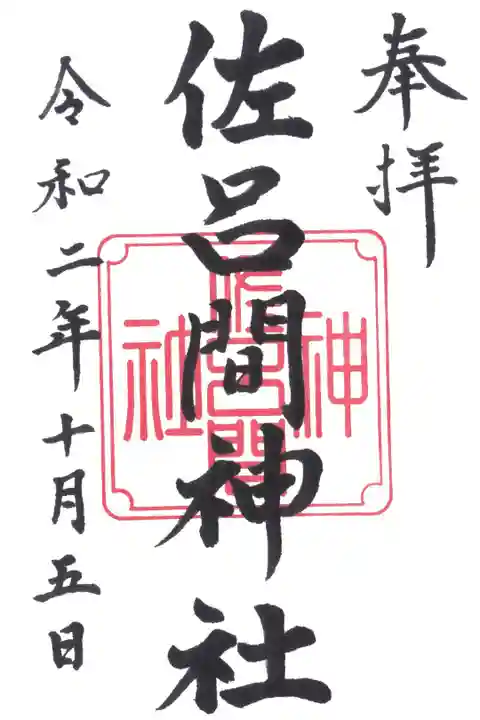 奉拝
佐呂間神社
神佐呂間社
令和二年十月五日